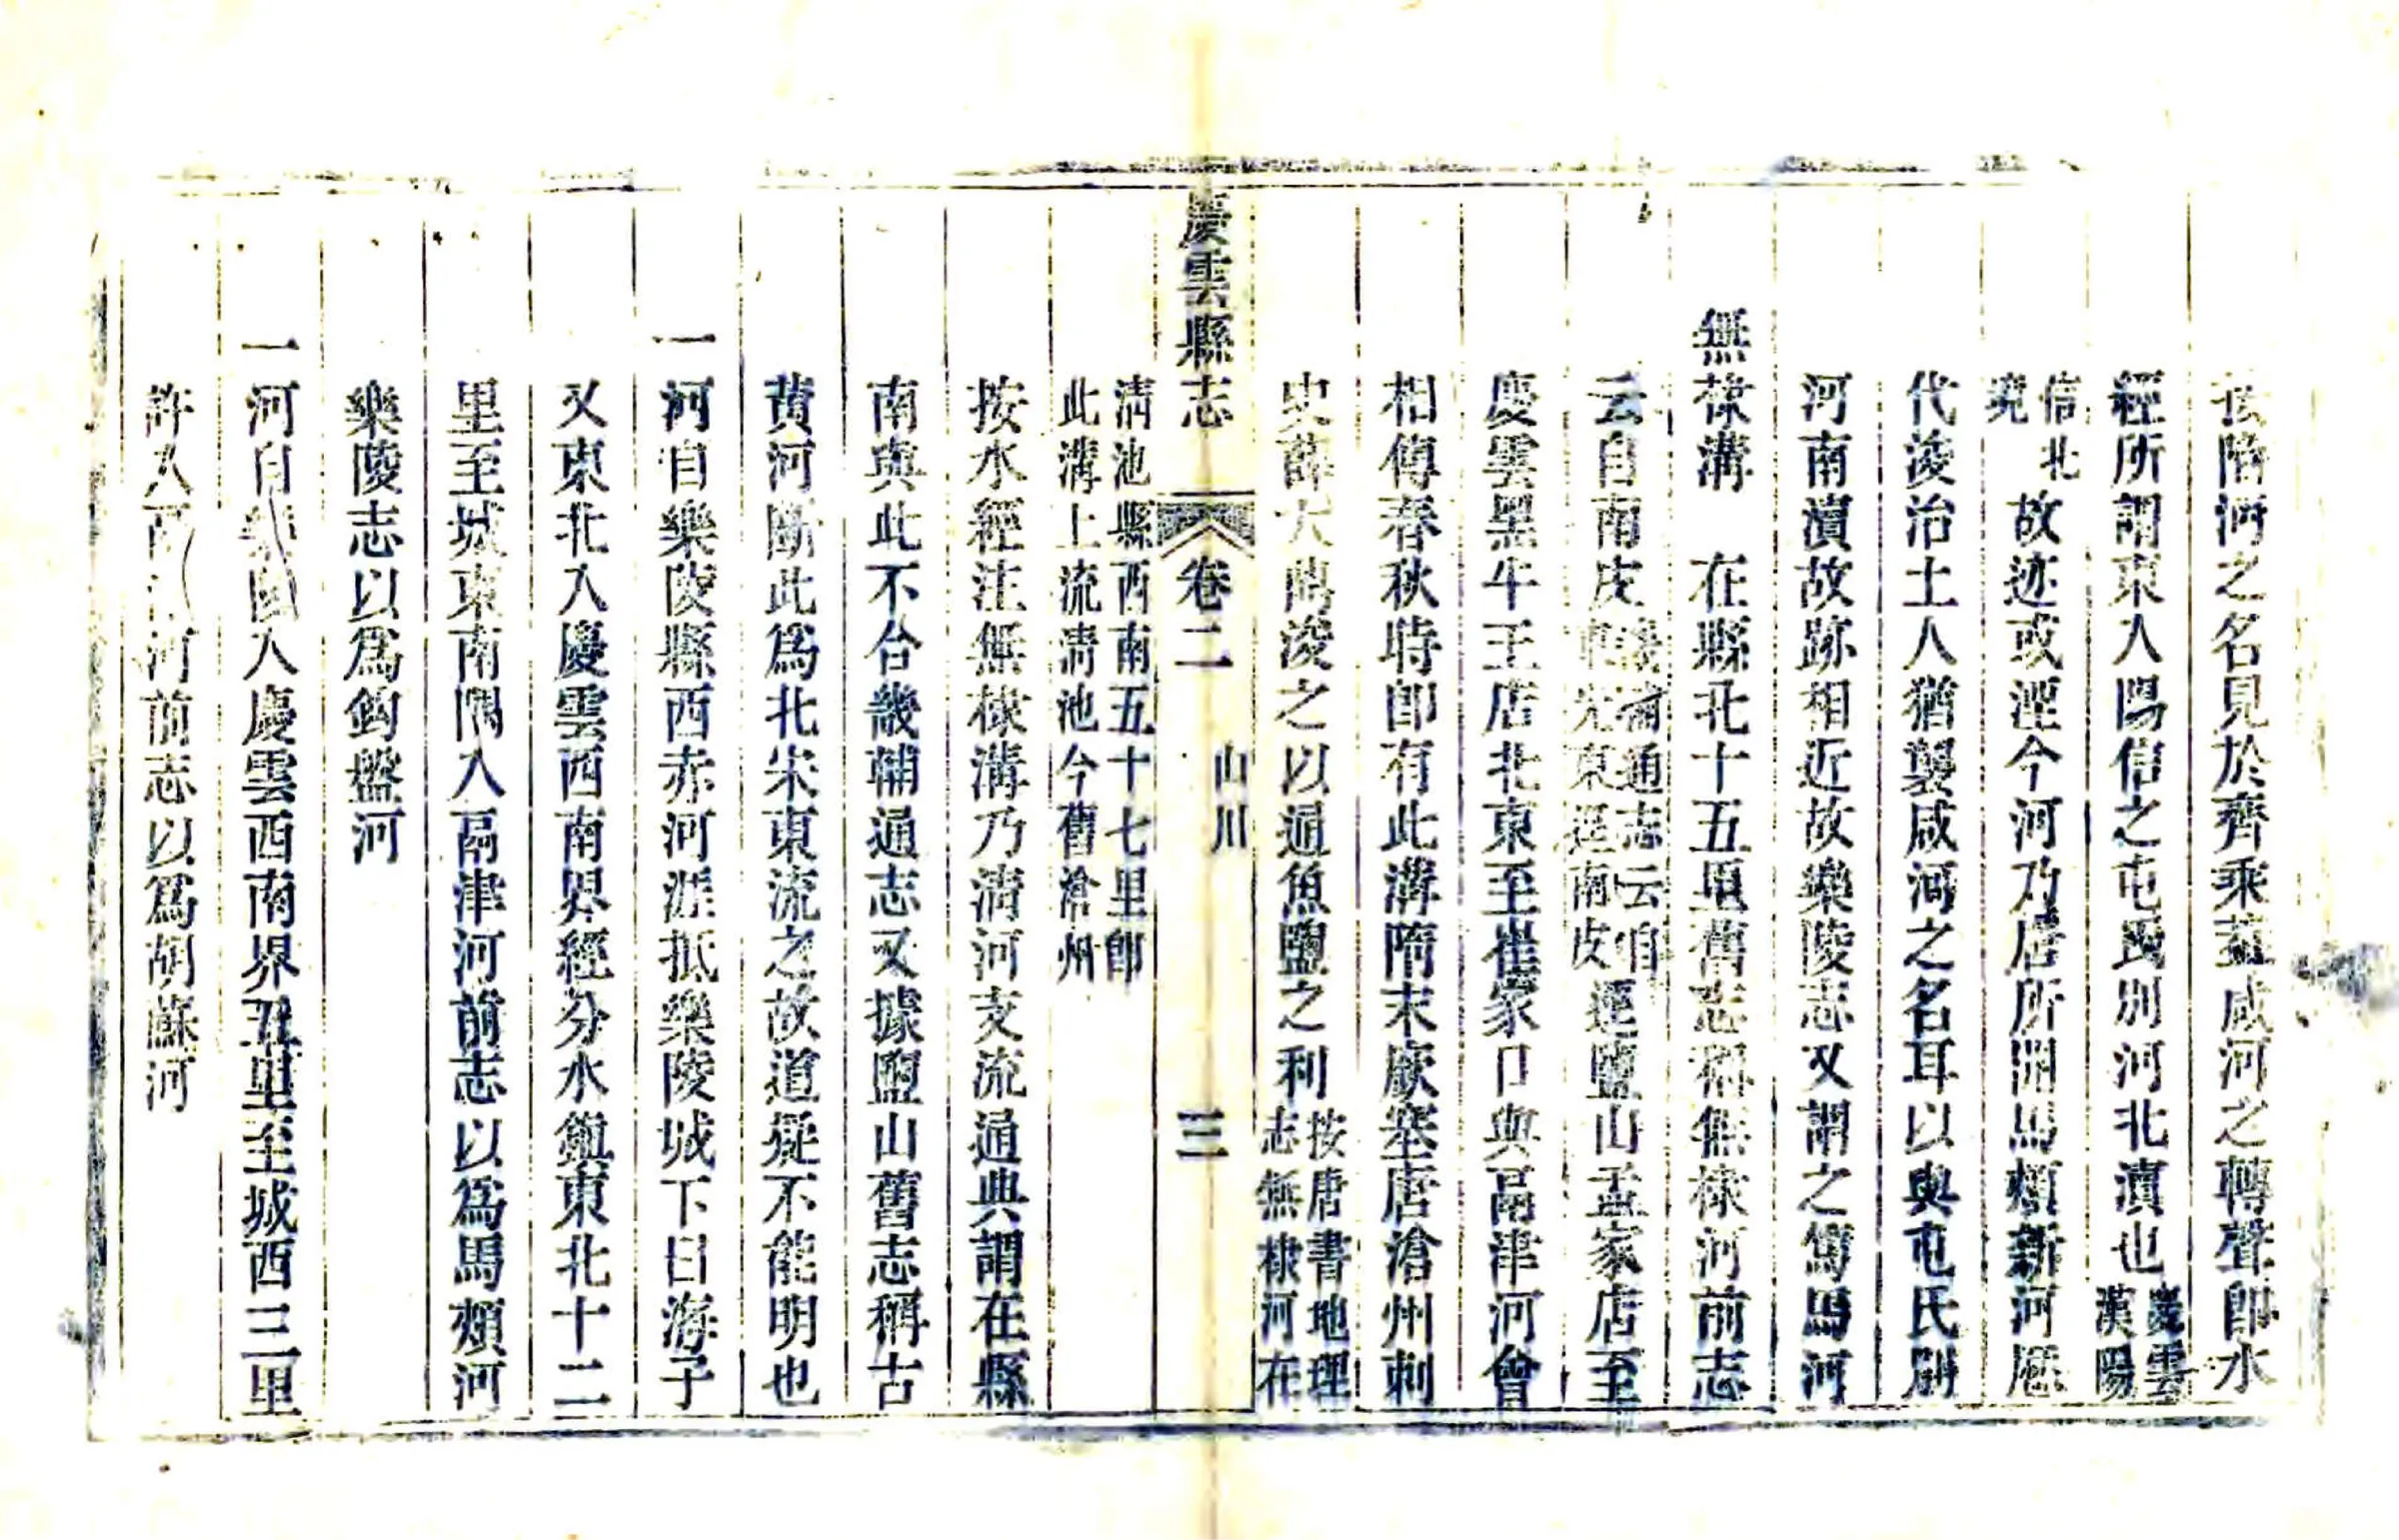 陷河之名見於齊乘蓋咸河之轉聲卽水
經所謂東入陽信之屯氏別河北瀆也慶雲漢陽
信北境故迹或湮今河乃唐所開馬頰新河歷
代浚治土人猶襲咸河之名耳以與屯氏別
河南瀆故跡相近故樂陵志又謂之篤馬河
無棣溝 在縣北十五里舊志稱無棣河前志
云自南皮畿輔通志云自東光東逕南皮逕鹽山孟家店至
慶雲黑牛王店北東至崔家口與鬲津河會
相傳春秋時卽有此溝隋末廢塞唐滄州刺
史薛大鼎浚之以通魚鹽之利按唐書地理志無棣河在
慶雲縣志 卷二 山川 三
清池縣西南五十七里卽此溝上流清池今舊滄州
按水經注無棣溝乃淸河支流通典謂在縣
南與此不合畿輔通志又據鹽山舊志稱古
黃河斷此爲北宋東流之故道疑不能明也
一河自樂陵縣西赤河涯抵樂陵城下曰海子
又東北入慶雲西南界經分水鎮東北十二
里至城東南隅入鬲津河前志以爲馬頰河
樂陵志以爲鉤盤河
一河自入慶雲西南界五里至城西三里
許入河前志以爲胡蘇河